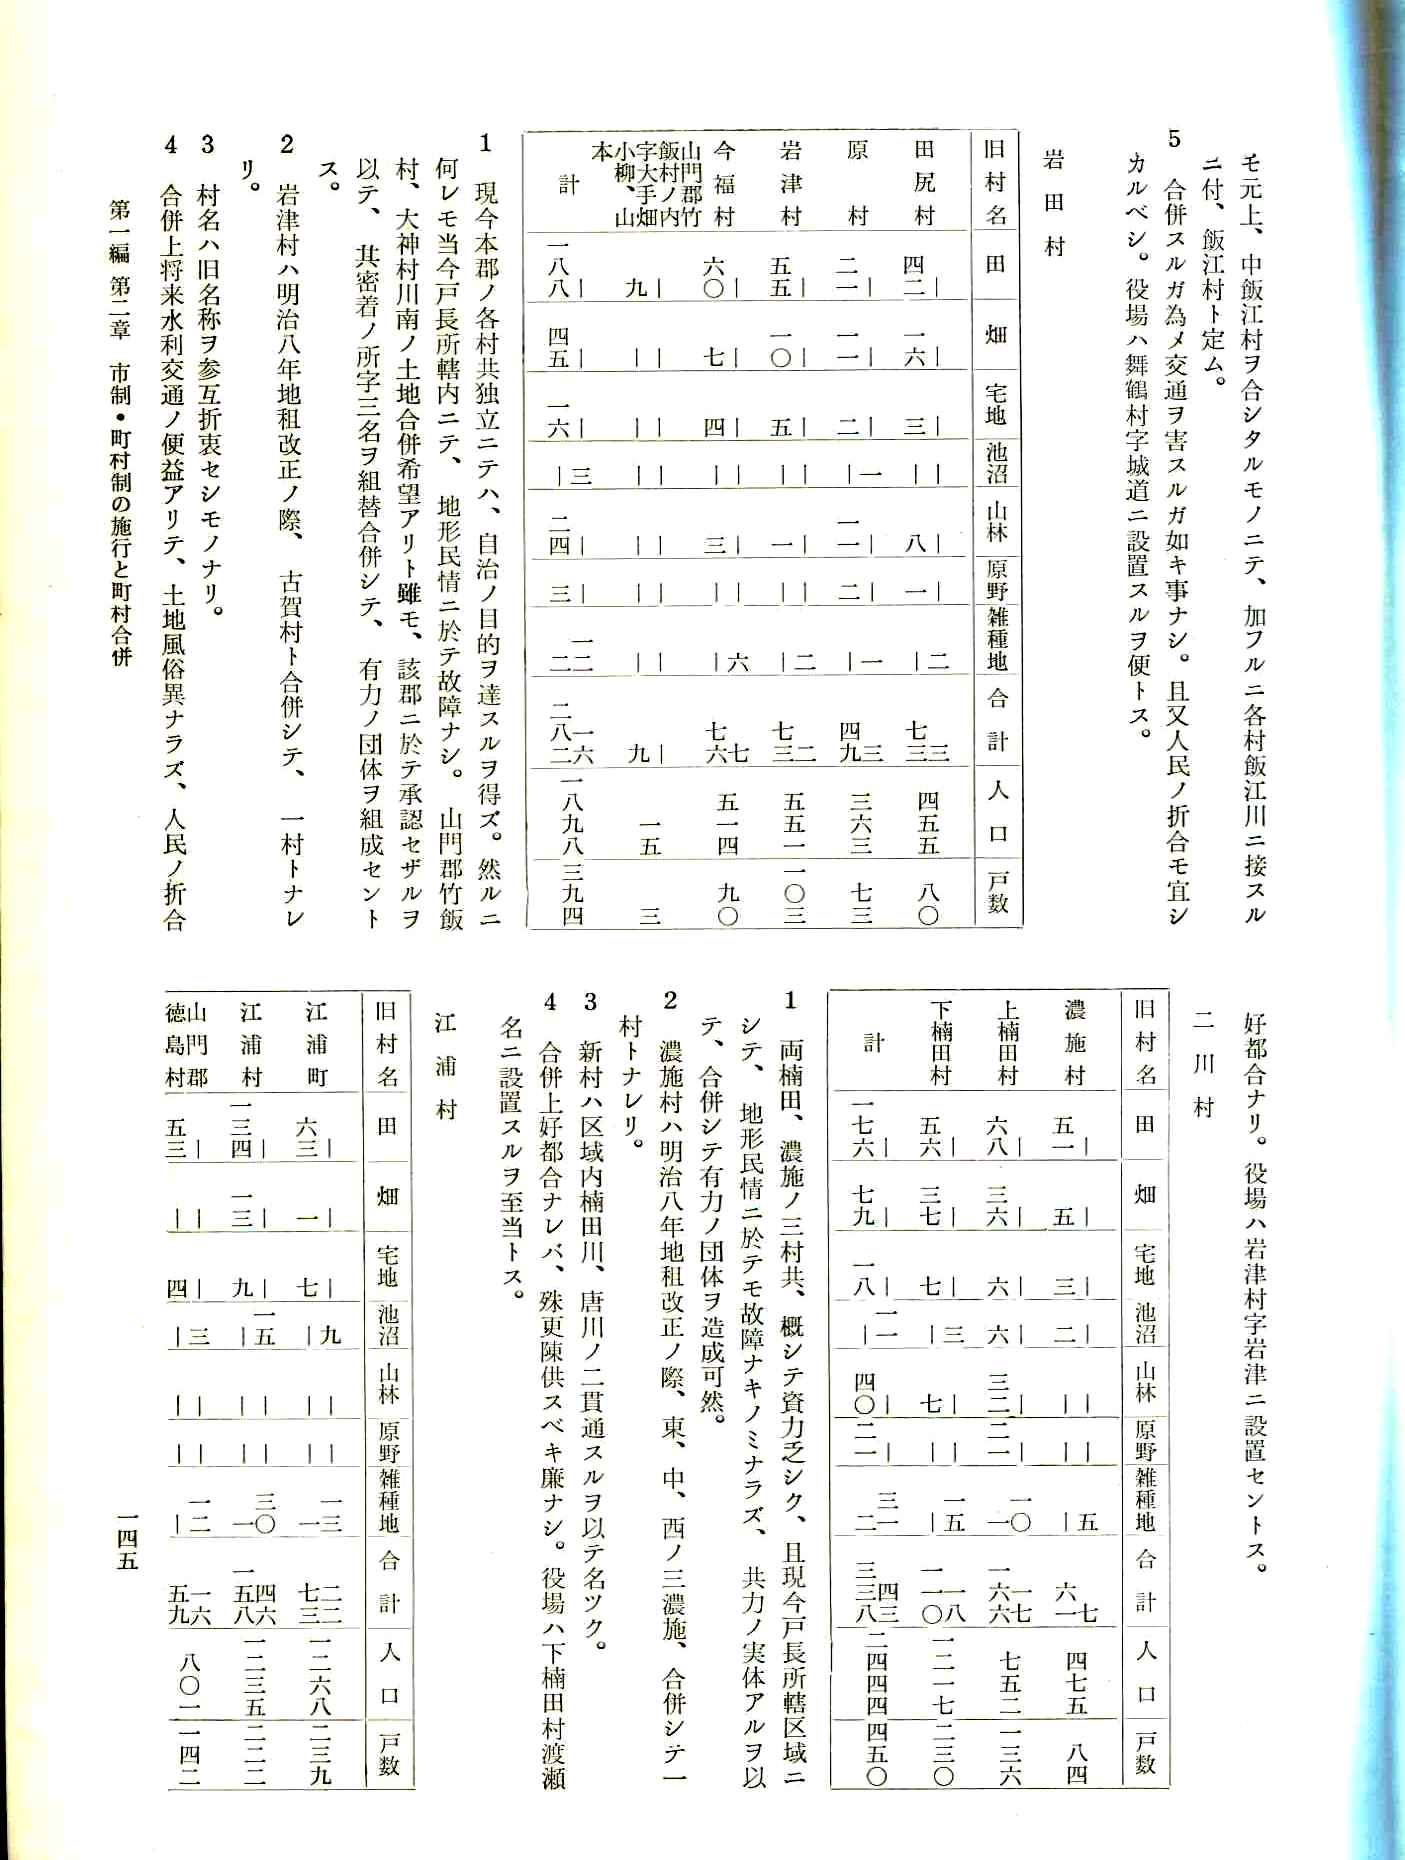 モ元上、中飯江村ヲ合シタルモノニテ、加フルニ各村飯江川ニ接スル
ニ付、飯江村ト定ム。
5 合併スルガ為メ交通ヲ害スルガ如キ事ナシ。且又人民ノ折合モ宜シ
カルベシ。役場ハ舞鶴村字城道ニ設置スルヲ便トス。
岩田村
旧村名 田 畑 宅地 池沼 山林 原野 雑種地 合計 人口 戸数
田尻村 四二| 一六| 三| || 八| 一| |二 七三三 四五五 八〇
原村 二一| 一一| 二| |一 一一| 二| |一 四九三 三六三 七三
岩津村 五五| 一〇| 五| || 一| || |二 七三二 五五一 一〇三
今福村 六〇| 七| 四| || 三| || |六 七六七 五一四 九〇
山門郡竹飯村ノ内字大手畑小柳、山本 九| || || || || || || 九| 一五 三
計 一八八| 四五| 一六| |三 二四| 三| 一二二 二八二一六 一八九八 三九四
1 現今本郡ノ各村共独立ニテハ、自治ノ目的ヲ達スルヲ得ズ。然ルニ
何レモ当今戸長所轄内ニテ、地形民情ニ於テ故障ナシ。山門郡竹飯
村、大神村川南ノ土地合併希望アリト雖モ、該郡ニ於テ承認セザルヲ
以テ、其密着ノ所字三名ヲ組替合併シテ、有力ノ団体ヲ組成セント
ス。
2 岩津村ハ明治八年地租改正ノ際、古賀村ト合併シテ、一村トナレ
リ。
3 村名ハ旧名称ヲ参互折衷セシモノナリ。
4 合併上将来水利交通ノ便益アリテ、土地風俗異ナラズ、人民ノ折合
好都合ナリ。役場ハ岩津村字岩津ニ設置セントス。
二川村
旧村名 田 畑 宅地 池沼 山林 原野 雑種地 合計 人口 戸数
濃施村 五一| 五| 三| 二| || || |五 六一七 四七五 八四
上楠田村 六八| 三六| 六| 六| 三二| 二一| 一一〇 一六六一七 七五二 一三六
下楠田村 五六| 三七| 七| |三 七| || |一五 一一〇一八 一二一七 二三〇
計 一七六| 七九| 一八| |一一 四〇| 二一| 二三一 三三八四三 二四四四 四五〇
1 両楠田、濃施ノ三村共、概シテ資力乏シク、且現今戸長所轄区域ニ
シテ、地形民情ニ於テモ故障ナキノミナラズ、共力ノ実体アルヲ以
テ、合併シテ有力ノ団体ヲ造成可然。
2 濃施村ハ明治八年地租改正ノ際、東、中、西ノ三濃施、合併シテ一
村トナレリ。
3 新村ハ区域内楠田川、唐川ノ二貫通スルヲ以テ名ツク。
4 合併上好都合ナレバ、殊更陳供スベキ廉ナシ。役場ハ下楠田村渡瀬
名ニ設置スルヲ至当トス。
江浦村
旧村名 田 畑 宅地 池沼 山林 原野 雑種地 合計 人口 戸数
江浦町 六三| 一| 七| |九 || || 一一三 七三二二 一二六八 二三九
江浦村 一三四| 一三| 九| |一五 || || 一三〇 一五八四六 一二三五 二二二
山門郡徳島村 五三| || 四| |三 || || |一二 五九一六 八〇一 一四二
第一編 第二章 市制・町村制の施行と町村合併
一四五